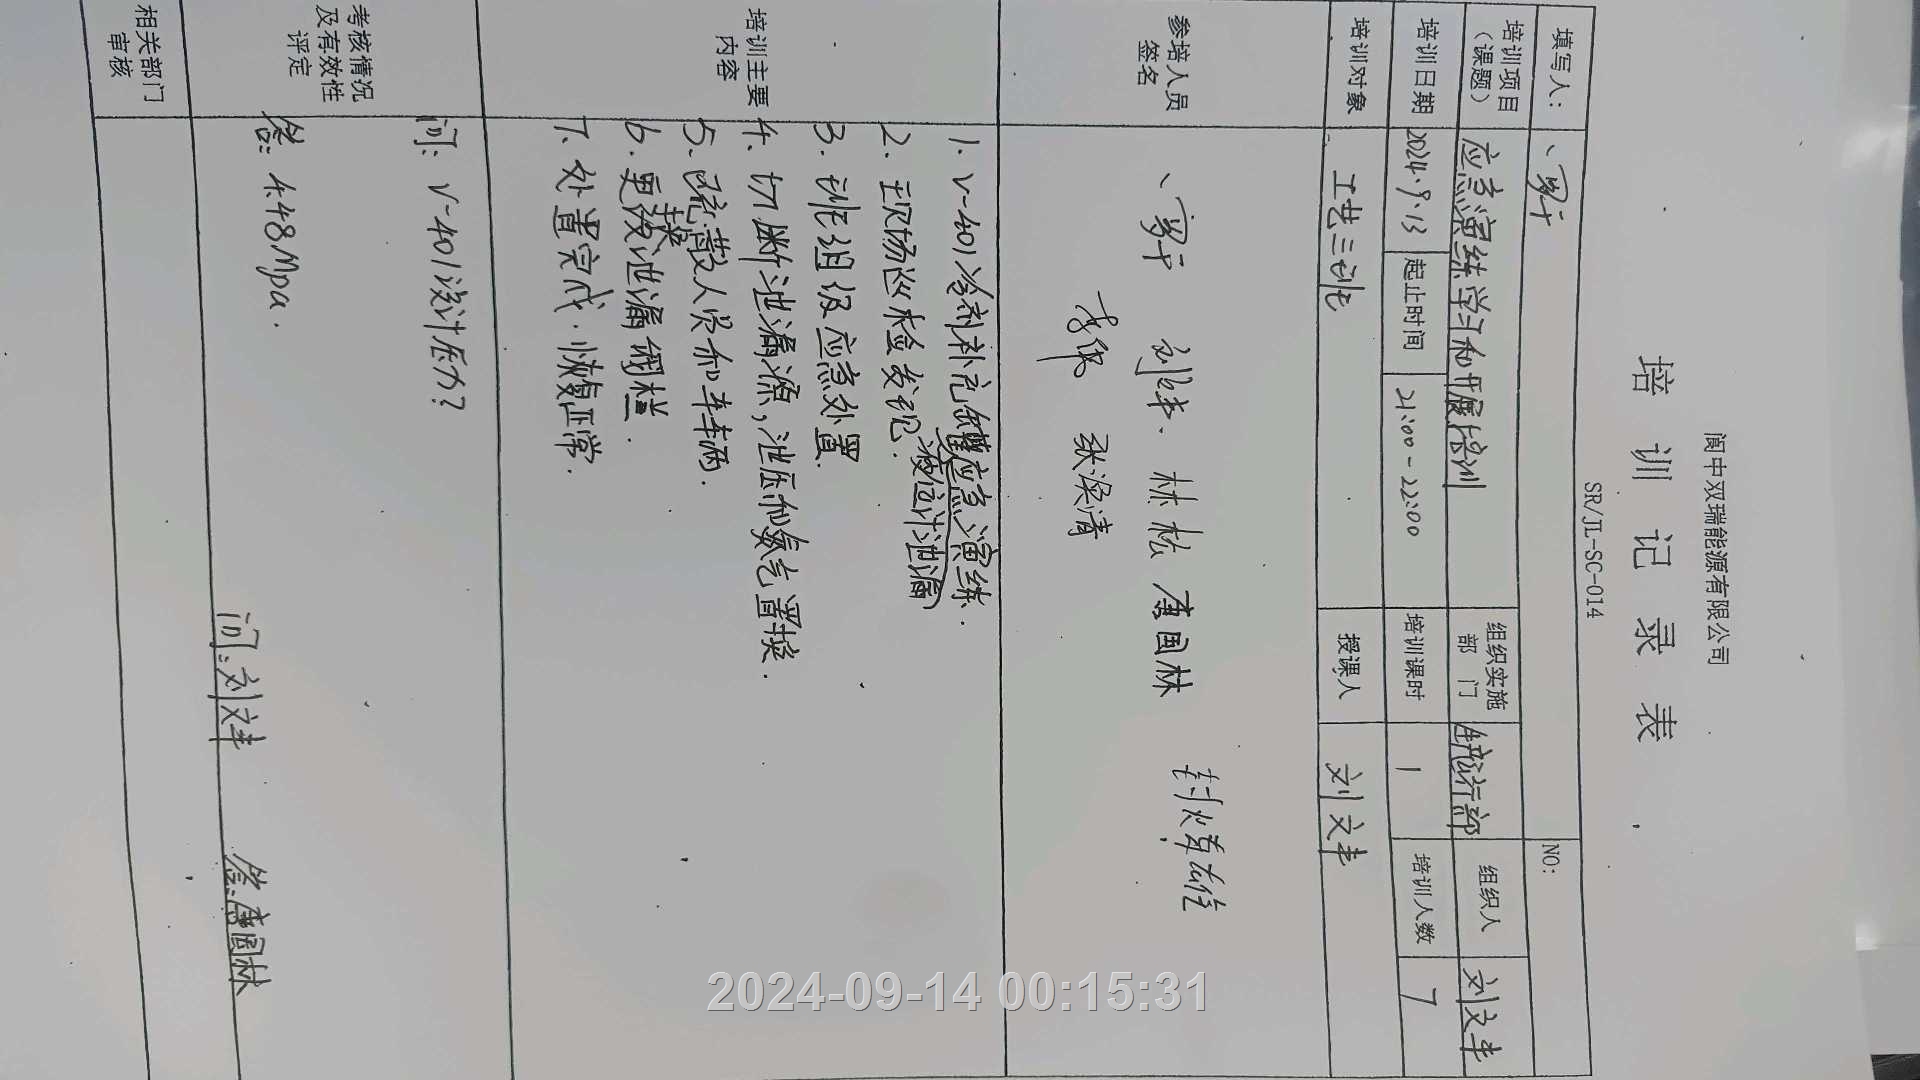 阆中双瑞能源有限公司
培训记录表
SR/JL-SC-014
填写人： NO:
培训项目（课题） 应急演练学习和开展培训 组织实施部门 生产运行部 组织人 刘文丰
培训日期 2024.9.13 起止时间 21:00-22:00 培训课时 1 培训人数 7
培训对象 工艺三班 授课人 刘文丰
参培人员签名 林松 唐国林
张涣清
培训主要内容
1. V-401冷剂补充罐液位计泄漏应急演练.
2. 现场巡检发现.
3. 班组级应急处置.
4. 切断泄漏源,泄压和氮气置换.
5. 疏散人员和车辆.
6. 更换泄漏阀栏.
7. 处置完成.恢复正常.
考核情况及有效性评定
问: V-401设计压力?
答: 4.48Mpa.
问:刘文丰 答:唐国林
相关部门审核
2024-09-14 00:15:31